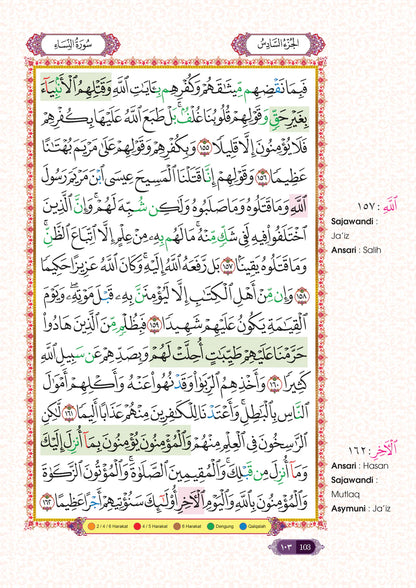 الجُزْءُ السَّادِسُ
سُورَةُ النِّسَاءِ
فَبِمَا نَقْضِهِم مِّيثَٰقَهُمْ وَكُفْرِهِم بِـَٔايَٰتِ ٱللَّهِ وَقَتْلِهِمُ ٱلْأَنۢبِيَآءَ
بِغَيْرِ حَقٍّ وَقَوْلِهِمْ قُلُوبُنَا غُلْفٌۢ ۚ بَلْ طَبَعَ ٱللَّهُ عَلَيْهَا بِكُفْرِهِمْ
فَلَا يُؤْمِنُونَ إِلَّا قَلِيلًا ١٥٥ وَبِكُفْرِهِمْ وَقَوْلِهِمْ عَلَىٰ مَرْيَمَ بُهْتَٰنًا
عَظِيمًا ١٥٦ وَقَوْلِهِمْ إِنَّا قَتَلْنَا ٱلْمَسِيحَ عِيسَى ٱبْنَ مَرْيَمَ رَسُولَ
ٱللَّهِ وَمَا قَتَلُوهُ وَمَا صَلَبُوهُ وَلَٰكِن شُبِّهَ لَهُمْ ۚ وَإِنَّ ٱلَّذِينَ
ٱخْتَلَفُوا۟ فِيهِ لَفِى شَكٍّ مِّنْهُ ۚ مَا لَهُم بِهِۦ مِنْ عِلْمٍ إِلَّا ٱتِّبَاعَ ٱلظَّنِّ ۚ
وَمَا قَتَلُوهُ يَقِينًۢا ١٥٧ بَل رَّفَعَهُ ٱللَّهُ إِلَيْهِ ۚ وَكَانَ ٱللَّهُ عَزِيزًا حَكِيمًا
١٥٨ وَإِن مِّنْ أَهْلِ ٱلْكِتَٰبِ إِلَّا لَيُؤْمِنَنَّ بِهِۦ قَبْلَ مَوْتِهِۦ ۖ وَيَوْمَ
ٱلْقِيَٰمَةِ يَكُونُ عَلَيْهِمْ شَهِيدًا ١٥٩ فَبِظُلْمٍ مِّنَ ٱلَّذِينَ هَادُوا۟
حَرَّمْنَا عَلَيْهِمْ طَيِّبَٰتٍ أُحِلَّتْ لَهُمْ وَبِصَدِّهِمْ عَن سَبِيلِ ٱللَّهِ
كَثِيرًا ١٦٠ وَأَخْذِهِمُ ٱلرِّبَوٰا۟ وَقَدْ نُهُوا۟ عَنْهُ وَأَكْلِهِمْ أَمْوَٰلَ
ٱلنَّاسِ بِٱلْبَٰطِلِ ۚ وَأَعْتَدْنَا لِلْكَٰفِرِينَ مِنْهُمْ عَذَابًا أَلِيمًا ١٦١ لَّٰكِنِ
ٱلرَّٰسِخُونَ فِى ٱلْعِلْمِ مِنْهُمْ وَٱلْمُؤْمِنُونَ يُؤْمِنُونَ بِمَآ أُنزِلَ إِلَيْكَ
وَمَآ أُنزِلَ مِن قَبْلِكَ ۚ وَٱلْمُقِيمِينَ ٱلصَّلَوٰةَ ۚ وَٱلْمُؤْتُونَ ٱلزَّكَوٰةَ
وَٱلْمُؤْمِنُونَ بِٱللَّهِ وَٱلْيَوْمِ ٱلْءَاخِرِ أُو۟لَٰٓئِكَ سَنُؤْتِيهِمْ أَجْرًا عَظِيمًا ١٦٢
ٱللَّهِ: ١٥٧
Sajawandi :
Ja'iz
Ansari : Salih
ٱلْءَاخِرِ: ١٦٢
Ansari : Hasan
Sajawandi :
Mutlaq
Asymuni : Ja'iz
2 / 4 / 6 Harakat 4 / 5 Harakat 6 Harakat Dengung Qalqalah
١٠٣ 103